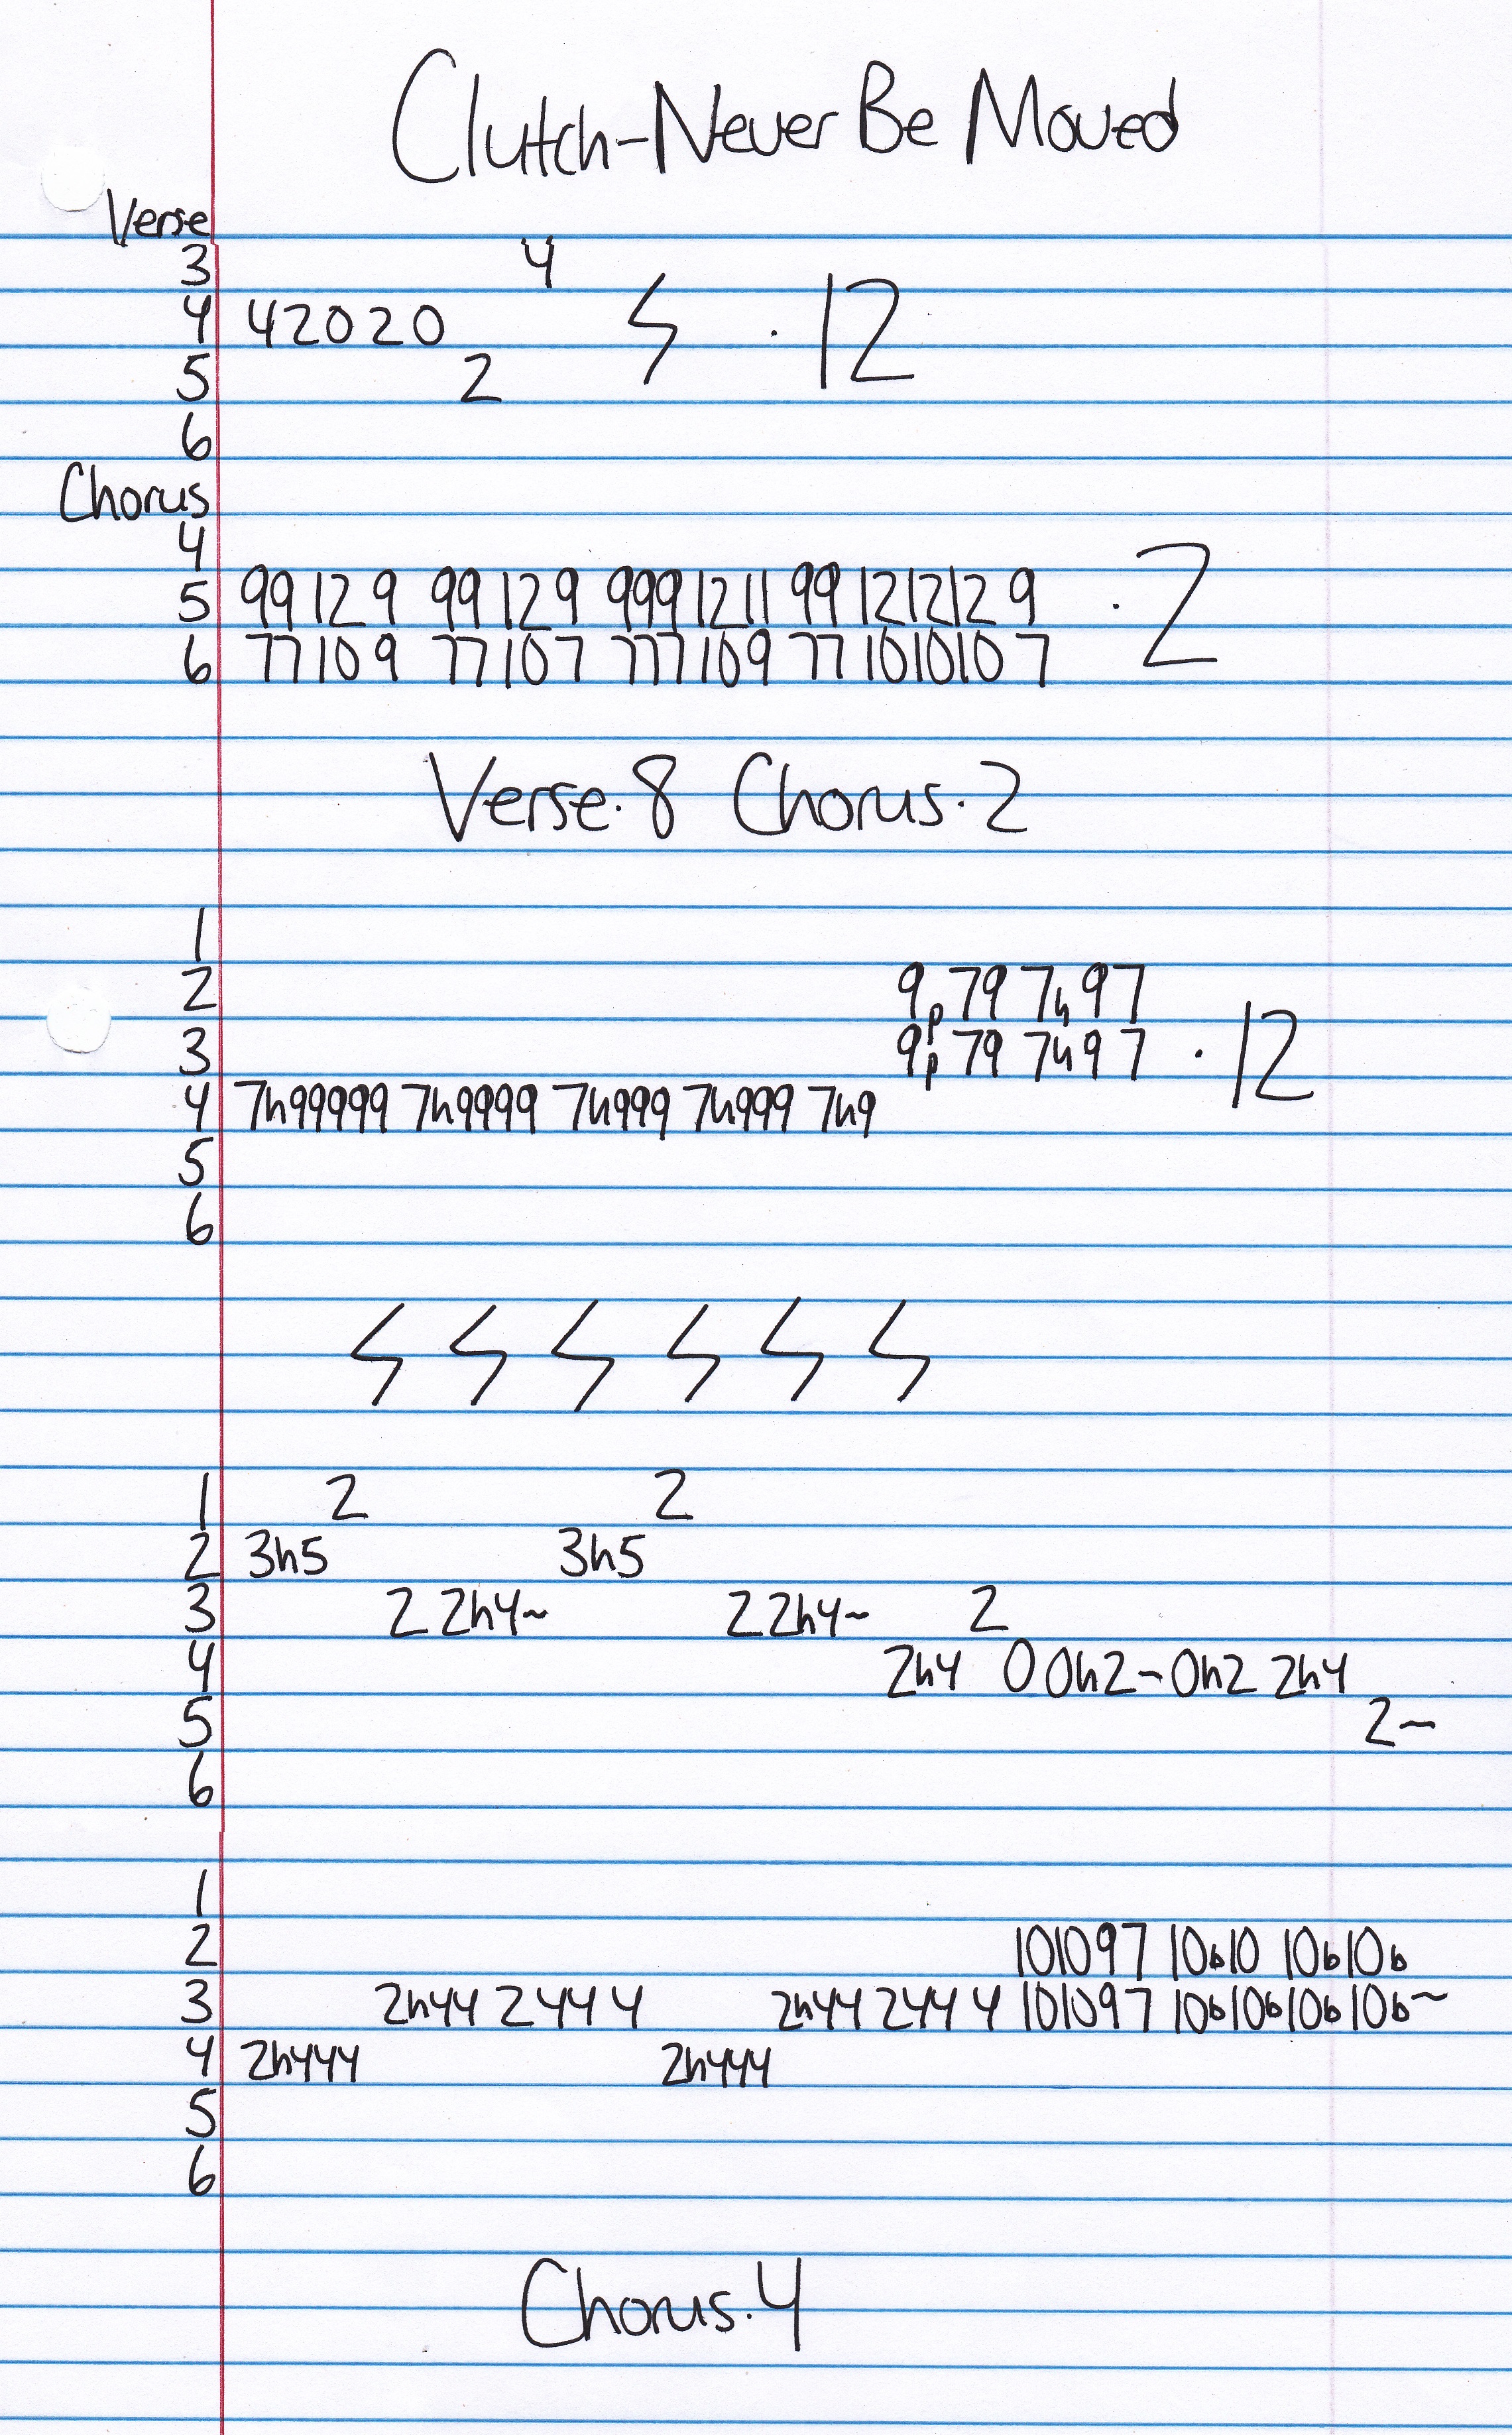 Clutch-Never Be Moved
Verse
3 4
4 42020 · 12
5 2
6
Chorus
4
5 99 12 9 99 12 9 999 12 11 99 12 12 12 9 · 2
6 77 10 9 77 10 7 777 10 9 77 10 10 10 7
Verse·8 Chorus·2
1
2 9p79 7h97
3 9p79 7h97 · 12
4 7h99999 7h9999 7h999 7h999 7h9
5
6
1 2 2
2 3h5 3h5
3 2 2h4~ 2 2h4~ 2
4 2h4 0 0h2~0h2 2h4
5 2~
6
1
2 10 10 9 7 10b10 10b10b
3 2h44 2444 2h44 2444 10 10 9 7 10b10b10b10b~
4 2h444 2h444
5
6
Chorus·4